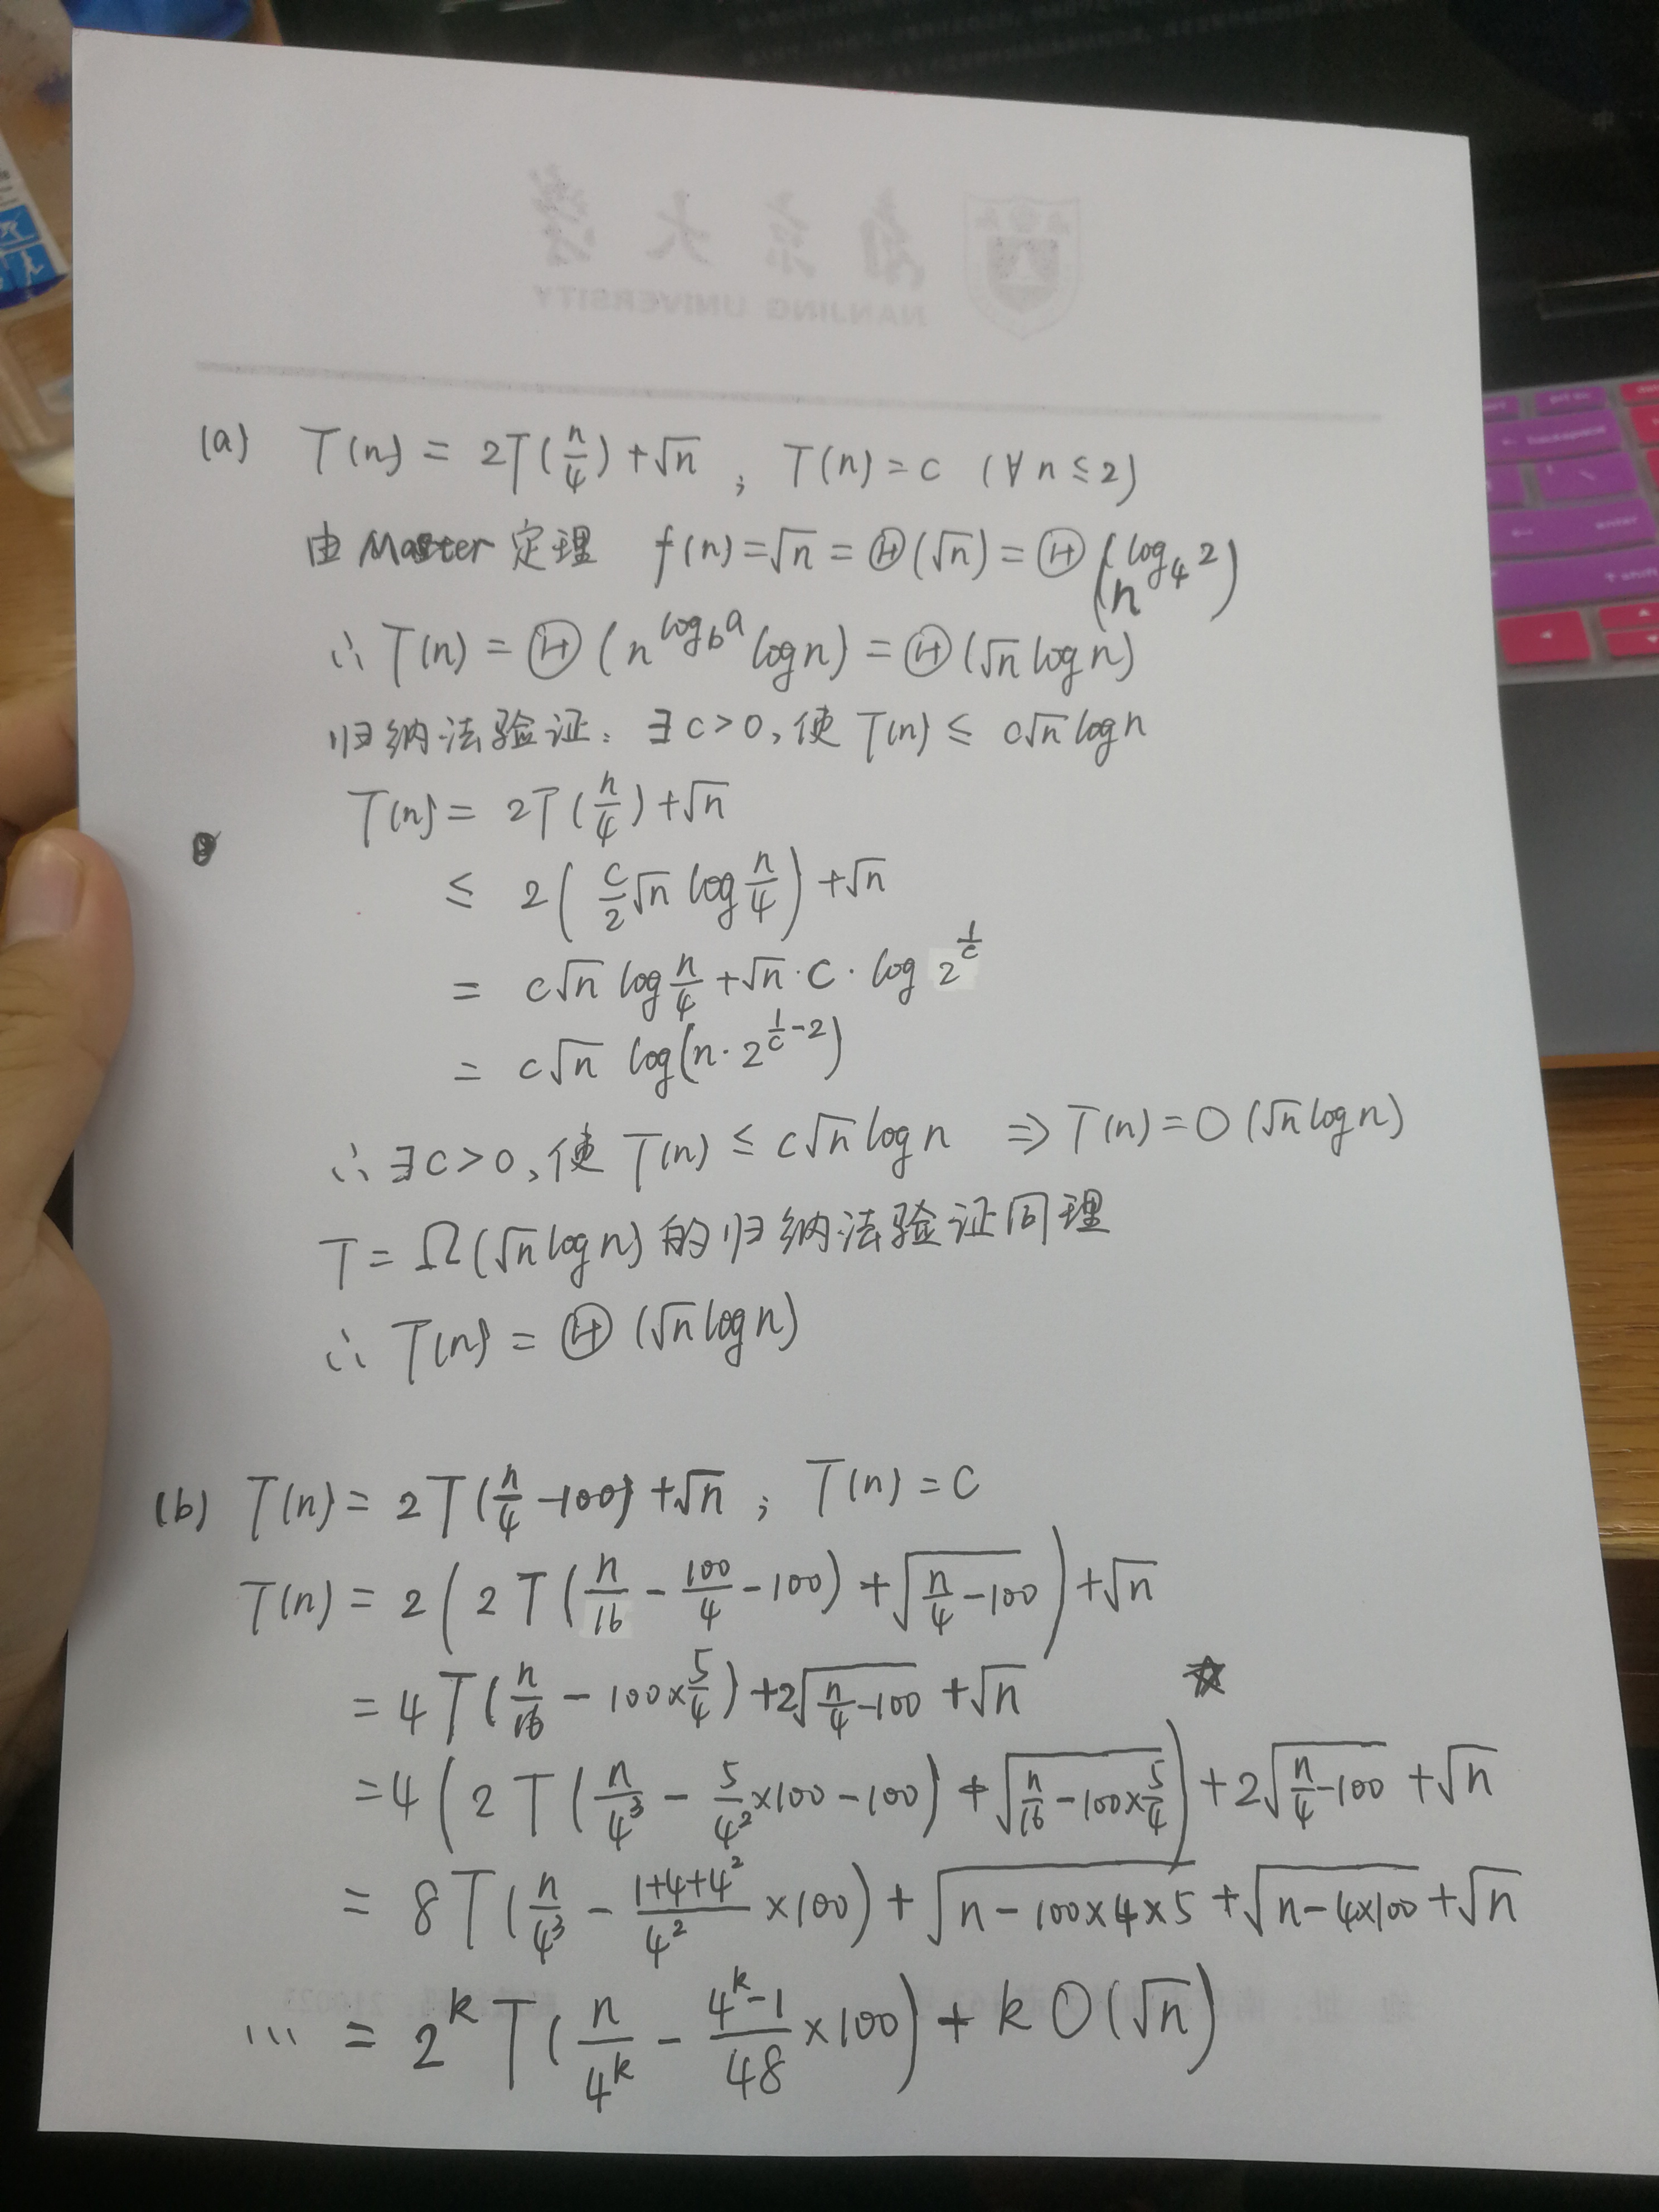 南京大学
NANJING UNIVERSITY
(a) T(n) = 2T(n/4) + √n ; T(n) = c (∀ n ≤ 2)
由 Master 定理 f(n) = √n = Θ(√n) = Θ(n^(log₄2))
∴ T(n) = Θ(n^(log_b a) log n) = Θ(√n log n)
归纳法验证: ∃ c > 0, 使 T(n) ≤ c√n log n
T(n) = 2T(n/4) + √n
≤ 2(c/2 √n log n/4) + √n
= c√n log n/4 + √n · c · log 2^(1/c)
= c√n log(n · 2^(1/c - 2))
∴ ∃ c > 0, 使 T(n) ≤ c√n log n ⇒ T(n) = O(√n log n)
T = Ω(√n log n) 的归纳法验证同理
∴ T(n) = Θ(√n log n)
(b) T(n) = 2T(n/4 - 100) + √n ; T(n) = C
T(n) = 2(2T(n/16 - 100/4 - 100) + √(n/4 - 100)) + √n
= 4T(n/16 - 100×5/4) + 2√(n/4 - 100) + √n ☆
= 4(2T(n/4³ - 5/4²×100 - 100) + √(n/16 - 100×5/4)) + 2√(n/4 - 100) + √n
= 8T(n/4³ - (1+4+4²)/4² ×100) + √(n - 100×4×5) + √(n - 4×100) + √n
... = 2^k T(n/4^k - (4^k - 1)/48 ×100) + k O(√n)